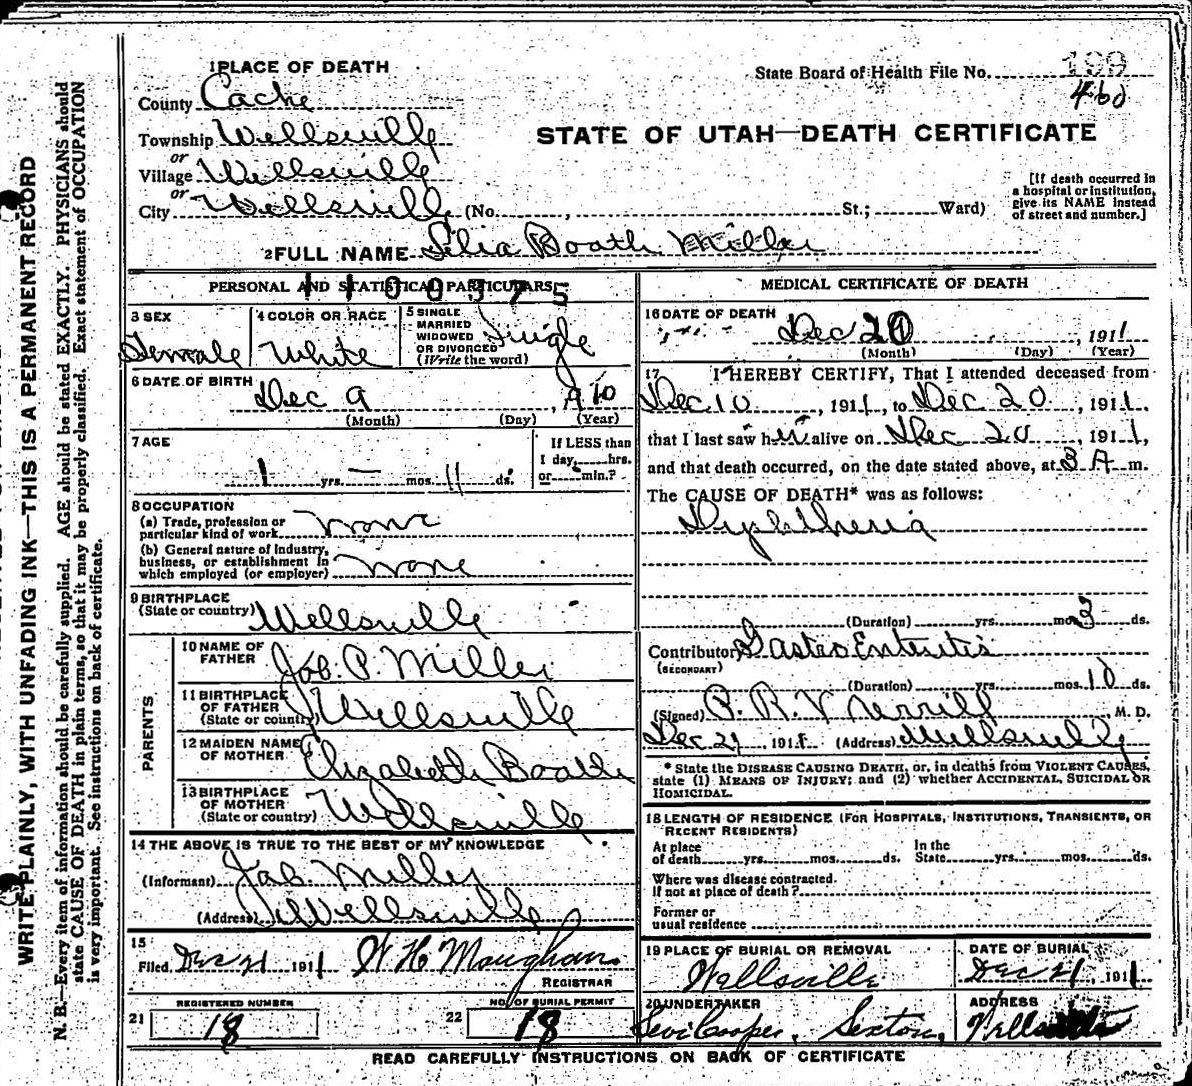 1 PLACE OF DEATH
State Board of Health File No. 199
460
County Cache
STATE OF UTAH—DEATH CERTIFICATE
Township Wellsville
or
Village Wellsville
or
City Wellsville (No. , St.; Ward)
[If death occurred in
a hospital or institution,
give its NAME instead
of street and number.]
2 FULL NAME Booth Miller
PERSONAL AND STATISTICAL PARTICULARS
3 SEX
Female
4 COLOR OR RACE
White
5 SINGLE
MARRIED
WIDOWED
OR DIVORCED
(Write the word)
Single
6 DATE OF BIRTH
Dec 9, 1910
(Month) (Day) (Year)
7 AGE
1 yrs. — mos. 11 ds.
If LESS than
1 day, hrs.
or min.?
8 OCCUPATION
(a) Trade, profession or
particular kind of work none
(b) General nature of Industry,
business, or establishment in
which employed (or employer) none
9 BIRTHPLACE
(State or country) Wellsville
PARENTS
10 NAME OF
FATHER Jab. P. Miller
11 BIRTHPLACE
OF FATHER
(State or country) Wellsville
12 MAIDEN NAME
OF MOTHER Elizabeth Booth
13 BIRTHPLACE
OF MOTHER
(State or country) Wellsville
14 THE ABOVE IS TRUE TO THE BEST OF MY KNOWLEDGE
(Informant) Jab. Miller
(Address) Wellsville
15
Filed Dec 21 1911 W H Maughan
REGISTRAR
REGISTERED NUMBER
21 18
NO. OF BURIAL PERMIT
22 18
MEDICAL CERTIFICATE OF DEATH
16 DATE OF DEATH
Dec 20, 1911
(Month) (Day) (Year)
17 I HEREBY CERTIFY, That I attended deceased from
Dec 10, 1911, to Dec 20, 1911,
that I last saw her alive on Dec 20, 1911,
and that death occurred, on the date stated above, at 3 A m.
The CAUSE OF DEATH* was as follows:
Dyphtheria
(Duration) yrs. mos. 3 ds.
Contributory Gastro Enteritis
(SECONDARY)
(Duration) yrs. mos. 10 ds.
(Signed) Merrill M. D.
Dec 21, 1911 (Address) Wellsville
* State the DISEASE CAUSING DEATH, or, in deaths from VIOLENT CAUSES,
state (1) MEANS OF INJURY; and (2) whether ACCIDENTAL, SUICIDAL OR
HOMICIDAL.
18 LENGTH OF RESIDENCE (FOR HOSPITALS, INSTITUTIONS, TRANSIENTS, OR
RECENT RESIDENTS)
At place
of death yrs. mos. ds.
In the
State yrs. mos. ds.
Where was disease contracted.
If not at place of death?
Former or
usual residence
19 PLACE OF BURIAL OR REMOVAL
Wellsville
DATE OF BURIAL
Dec 21, 1911
20 UNDERTAKER
Levi Cooper, Sexton,
ADDRESS
Wellsville
READ CAREFULLY INSTRUCTIONS ON BACK OF CERTIFICATE
WRITE PLAINLY, WITH UNFADING INK—THIS IS A PERMANENT RECORD
N. B.—Every item of information should be carefully supplied. AGE should be stated EXACTLY. PHYSICIANS should
state CAUSE OF DEATH in plain terms, so that it may be properly classified. Exact statement of OCCUPATION
is very important. See instructions on back of certificate.